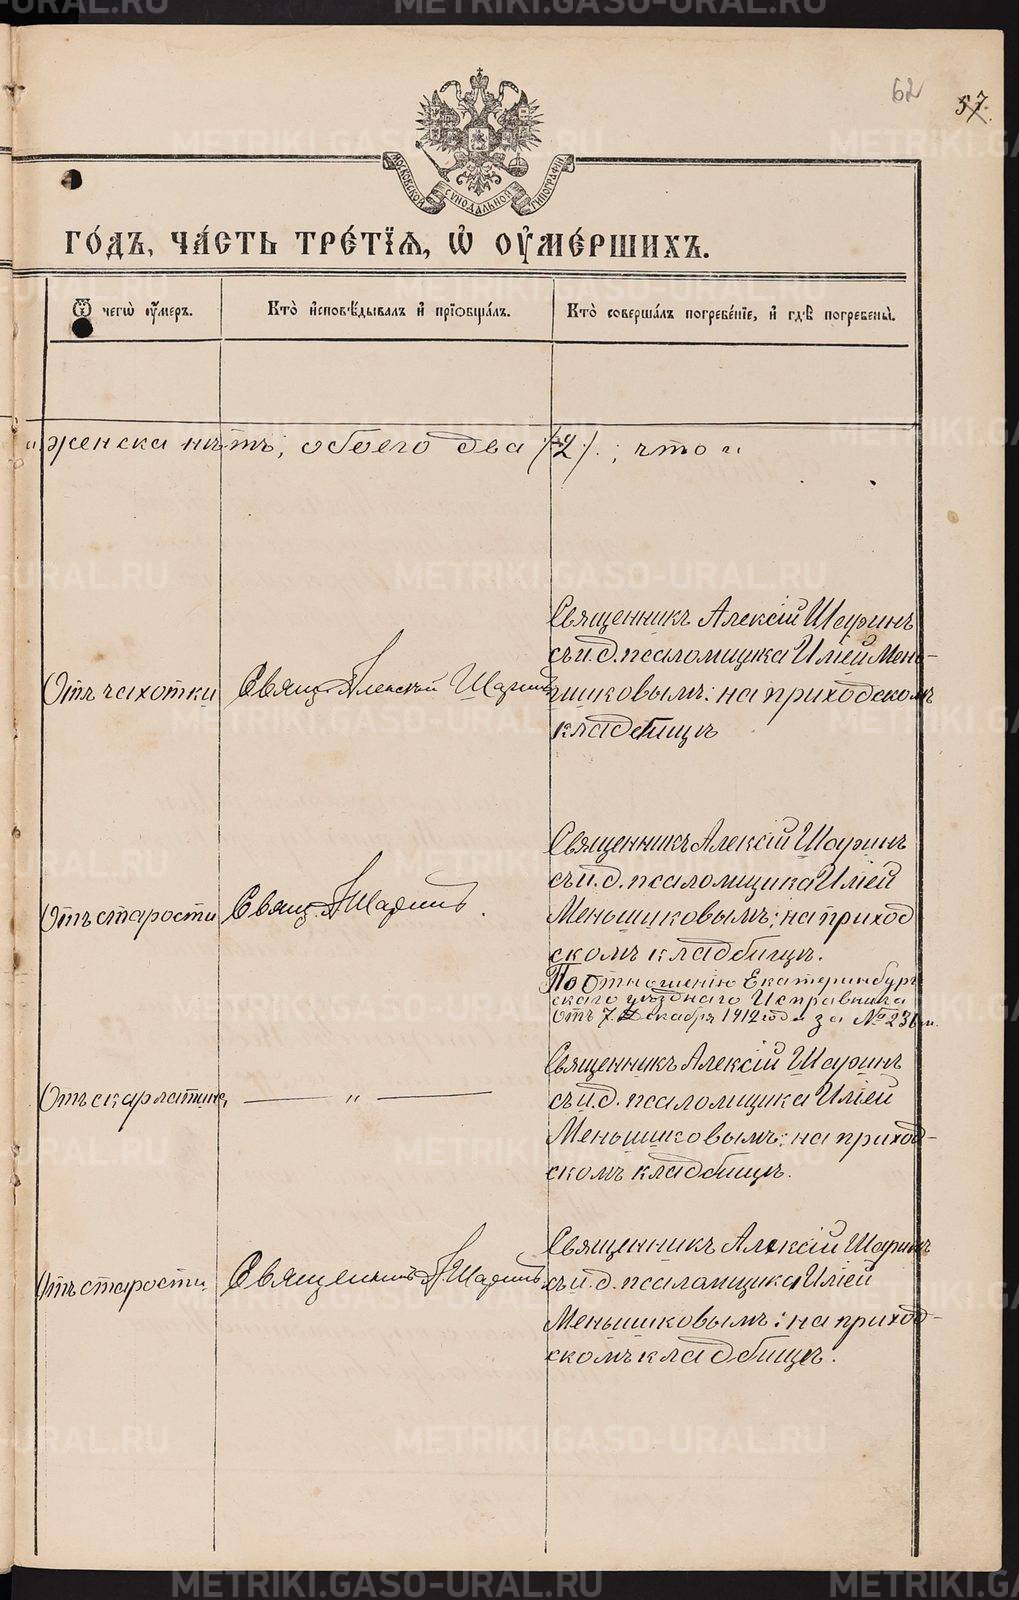 62
57.
МОСКОВСКОЙ СѴНОДАЛЬНОЙ ТИПОГРАФІИ
ГО́ДЪ, ЧА́СТЬ ТРЕ́ТІѦ, Ѽ ОУ҆МЕ́РШИХЪ.
Ѿ чегѡ̀ оу҆́меръ.
Кто̀ и҆сповѣ́дывалъ и҆ прїѡбща́лъ.
Кто̀ соверша́лъ погребе́нїе, и҆ гдѣ̀ погребены̀.
„женска нѣтъ; обоего два /:2:/. ; что „
Отъ чахотки
Свящ. Алексій Шаринъ
Священникъ Алексій Шаринъ
съ и.д. псаломщика Иліей Мень-
шиковымъ: на приходскомъ
кладбищѣ
Отъ старости
Свящ. А Шаринъ.
Священникъ Алексій Шаринъ
съ и.д. псаломщика Иліей
Меньшиковымъ; на приход
скомъ кладбищѣ.
По отношенію Екатеринбург
скаго уѣзднаго Исправника
отъ 7 Декабря 1912 года за №
Отъ скарлатины
— „ —
Священникъ Алексій Шаринъ
съ и.д. псаломщика Иліей
Меньшиковымъ: на приход-
скомъ кладбищѣ.
Отъ старости.
Священникъ А. Шаринъ
Священникъ Алексій Шаринъ
съ и.д. псаломщика Иліей
Меньшиковымъ: на приход-
скомъ кладбищѣ.
METRIKI.GASO-URAL.RU